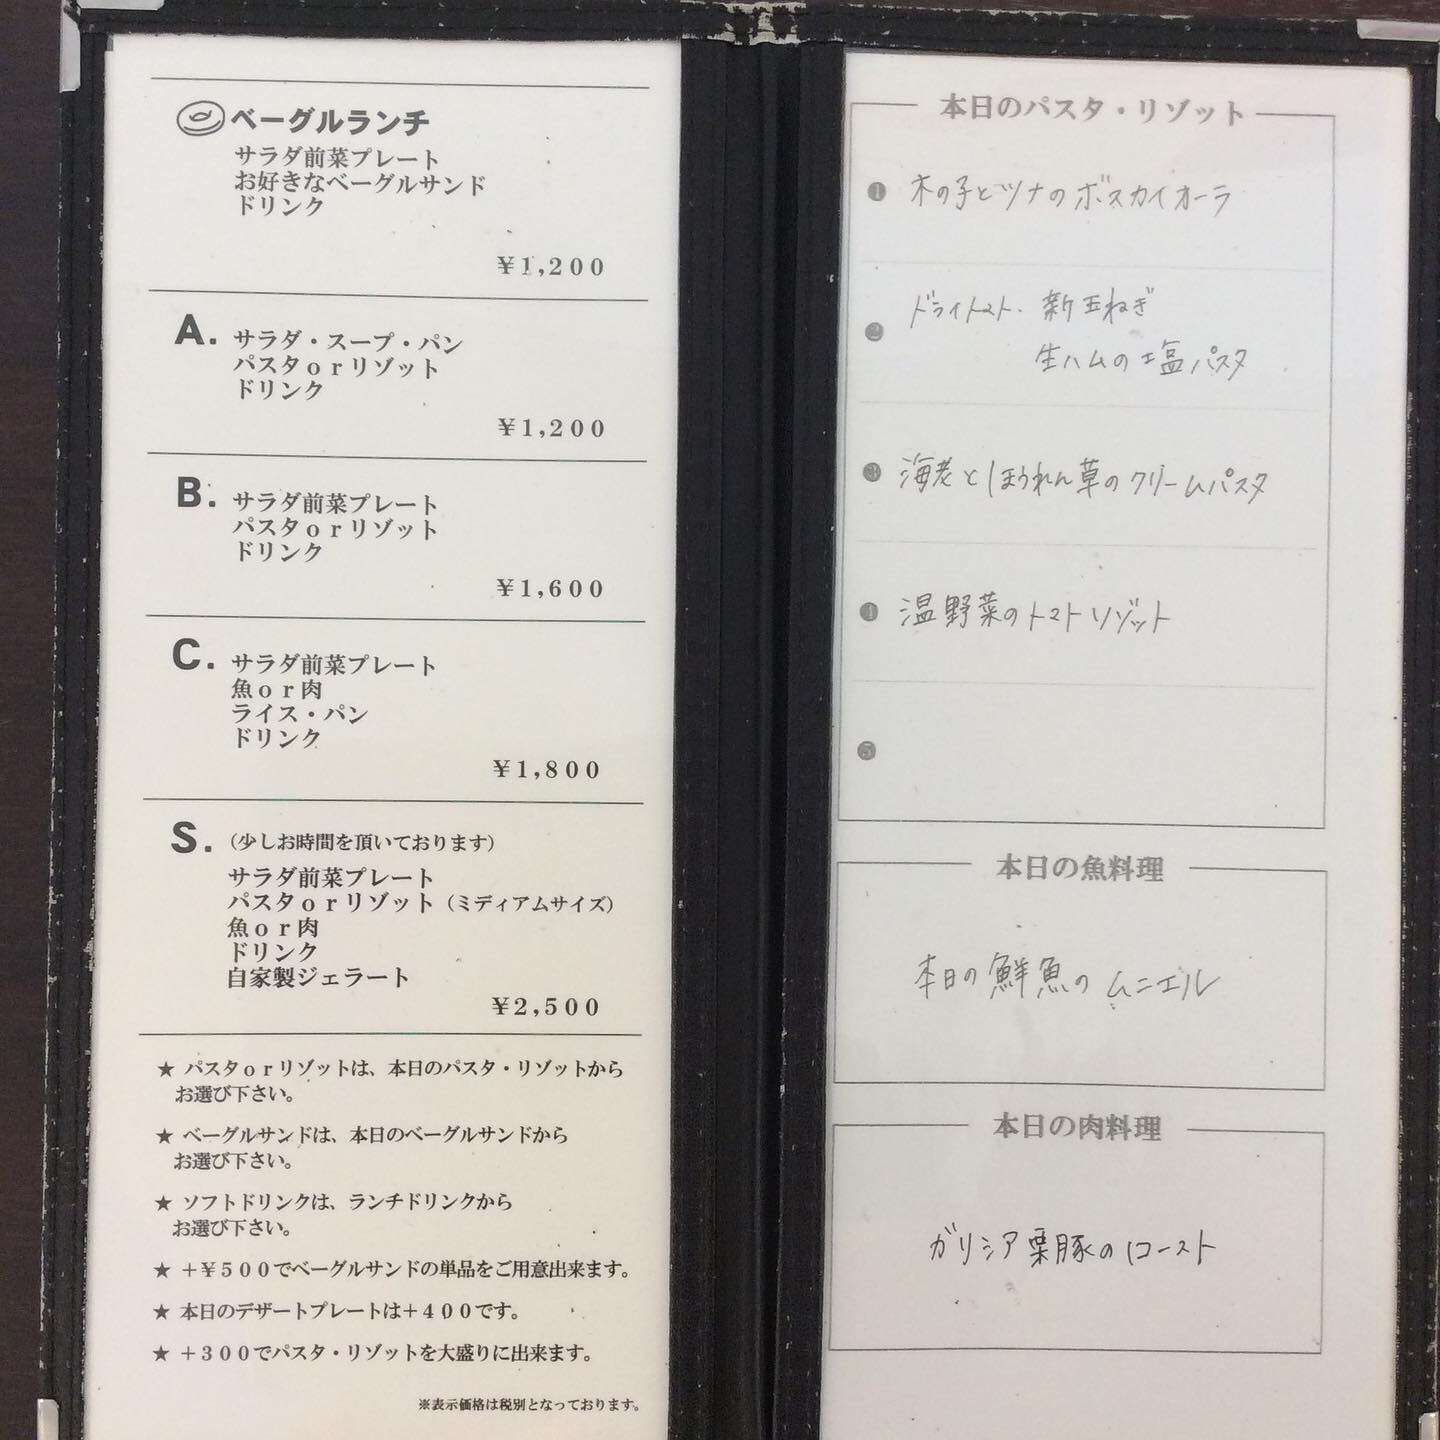 ベーグルランチ
サラダ前菜プレート
お好きなベーグルサンド
ドリンク
￥1,200
A.
サラダ・スープ・パン
パスタorリゾット
ドリンク
￥1,200
B.
サラダ前菜プレート
パスタorリゾット
ドリンク
￥1,600
C.
サラダ前菜プレート
魚or肉
ライス・パン
ドリンク
￥1,800
S.（少しお時間を頂いております）
サラダ前菜プレート
パスタorリゾット（ミディアムサイズ）
魚or肉
ドリンク
自家製ジェラート
￥2,500
★ パスタorリゾットは、本日のパスタ・リゾットから
お選び下さい。
★ ベーグルサンドは、本日のベーグルサンドから
お選び下さい。
★ ソフトドリンクは、ランチドリンクから
お選び下さい。
★ ＋￥500でベーグルサンドの単品をご用意出来ます。
★ 本日のデザートプレートは＋400です。
★ ＋300でパスタ・リゾットを大盛りに出来ます。
※表示価格は税別となっております。
本日のパスタ・リゾット
❶ 木の子とツナのボスカイオーラ
❷ ドライトマト・新玉ねぎ
生ハムの塩パスタ
❸ 海老とほうれん草のクリームパスタ
❹ 温野菜のトマトリゾット
❺
本日の魚料理
本日の鮮魚のムニエル
本日の肉料理
ガリシア栗豚のロースト